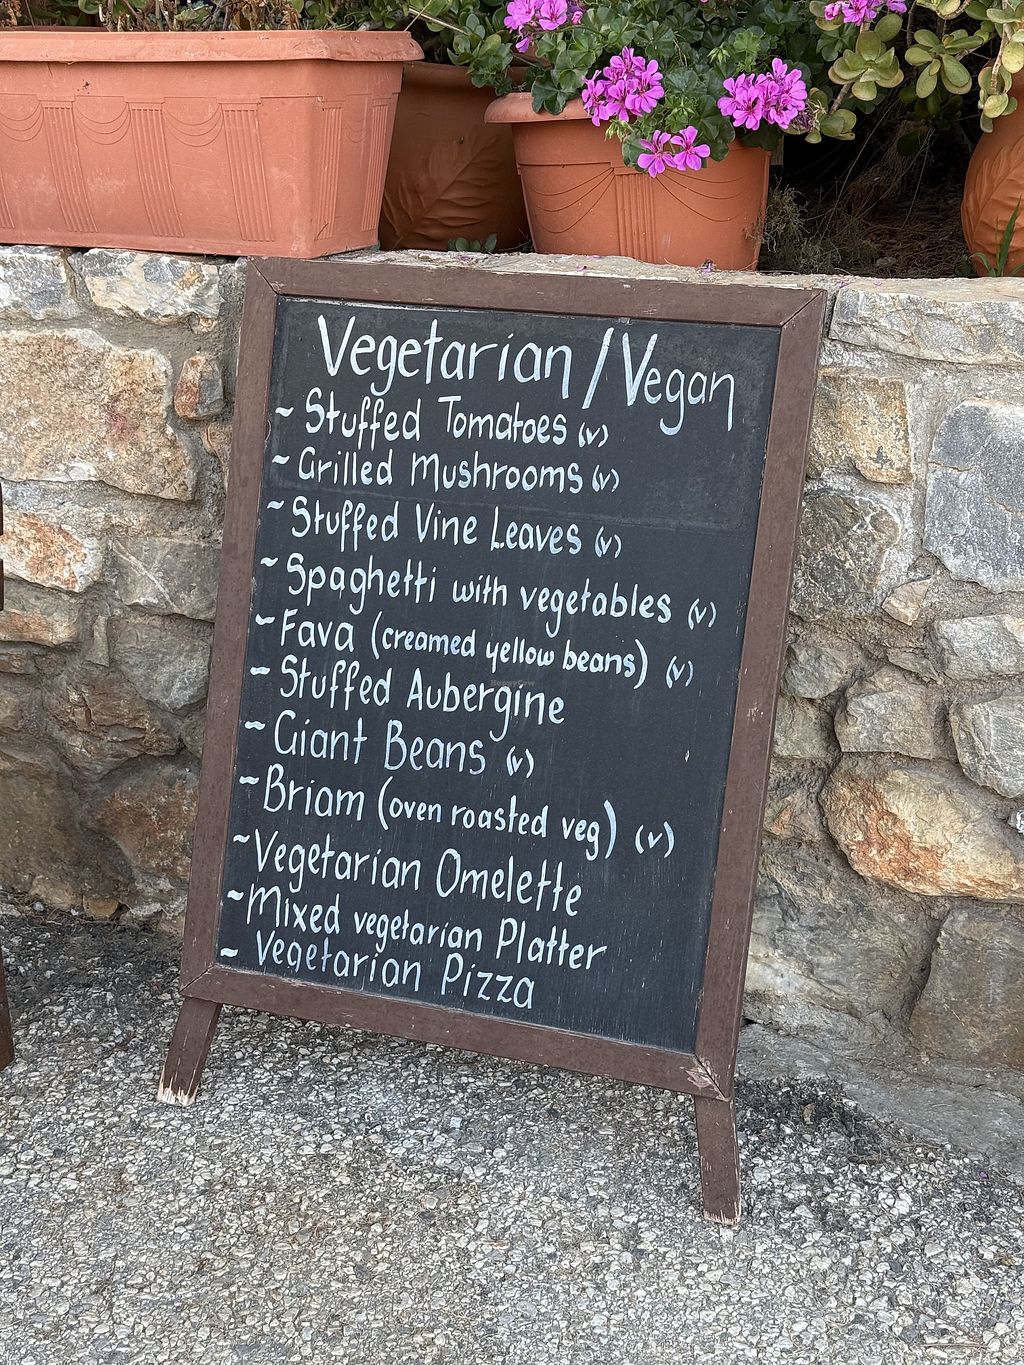 Vegetarian/Vegan
~ Stuffed Tomatoes (v)
~ Grilled Mushrooms (v)
~ Stuffed Vine Leaves (v)
~ Spaghetti with vegetables (v)
~ Fava (creamed yellow beans) (v)
~ Stuffed Aubergine
~ Giant Beans (v)
~ Briam (oven roasted veg) (v)
~ Vegetarian Omelette
~ Mixed vegetarian Platter
~ Vegetarian Pizza
HappyCow